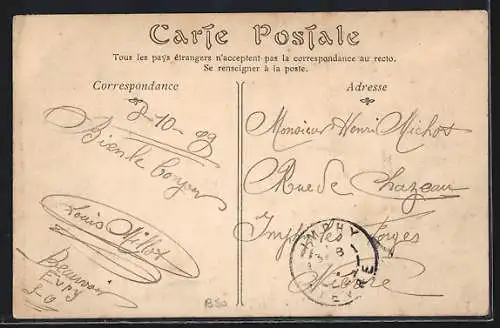 Carte Postale
Tous les pays étrangers n'acceptent pas la correspondance au recto.
Se renseigner à la poste.
Correspondance
Adresse
8-10-09
Bien le bonjour
Louis Millot
Beauvais
Evry
S-O
Monsieur Henri Michot
Rue de Chazeau
Imphy les Forges
Nièvre
IMPHY
NIEVRE